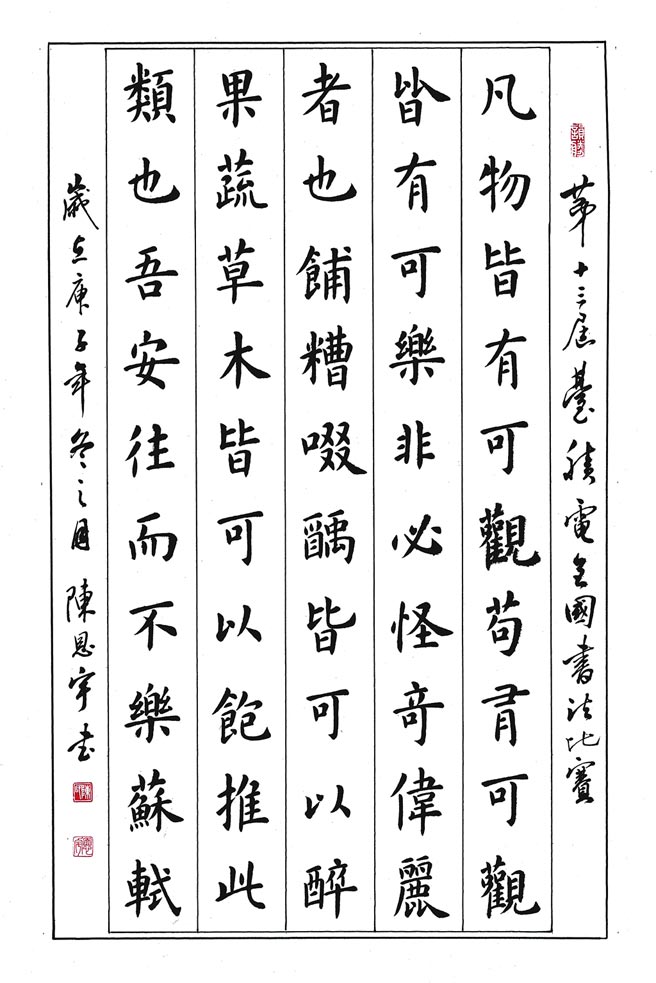 第十三屆臺積電全國書法比賽
凡物皆有可觀苟有可觀
皆有可樂非必怪奇偉麗
者也餔糟啜醨皆可以醉
果蔬草木皆可以飽推此
類也吾安往而不樂蘇軾
歲在庚子年冬之月 陳恩宇書